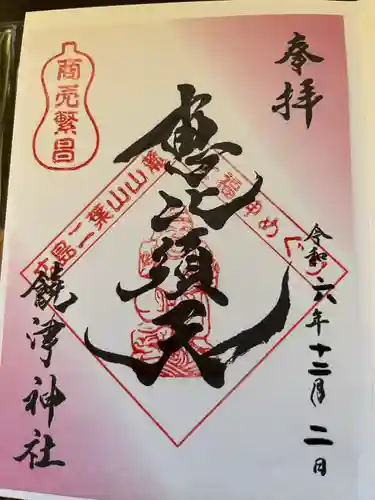 奉拝
商売繁昌
恵比須天
二葉山山麓
福神めぐり
令和六年十二月二日
饒津神社